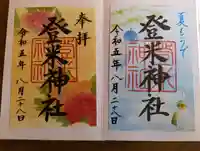 奉拝
登米神社
令和五年
八月二十八日
夏もうで
登米神社
令和五年八月二八日